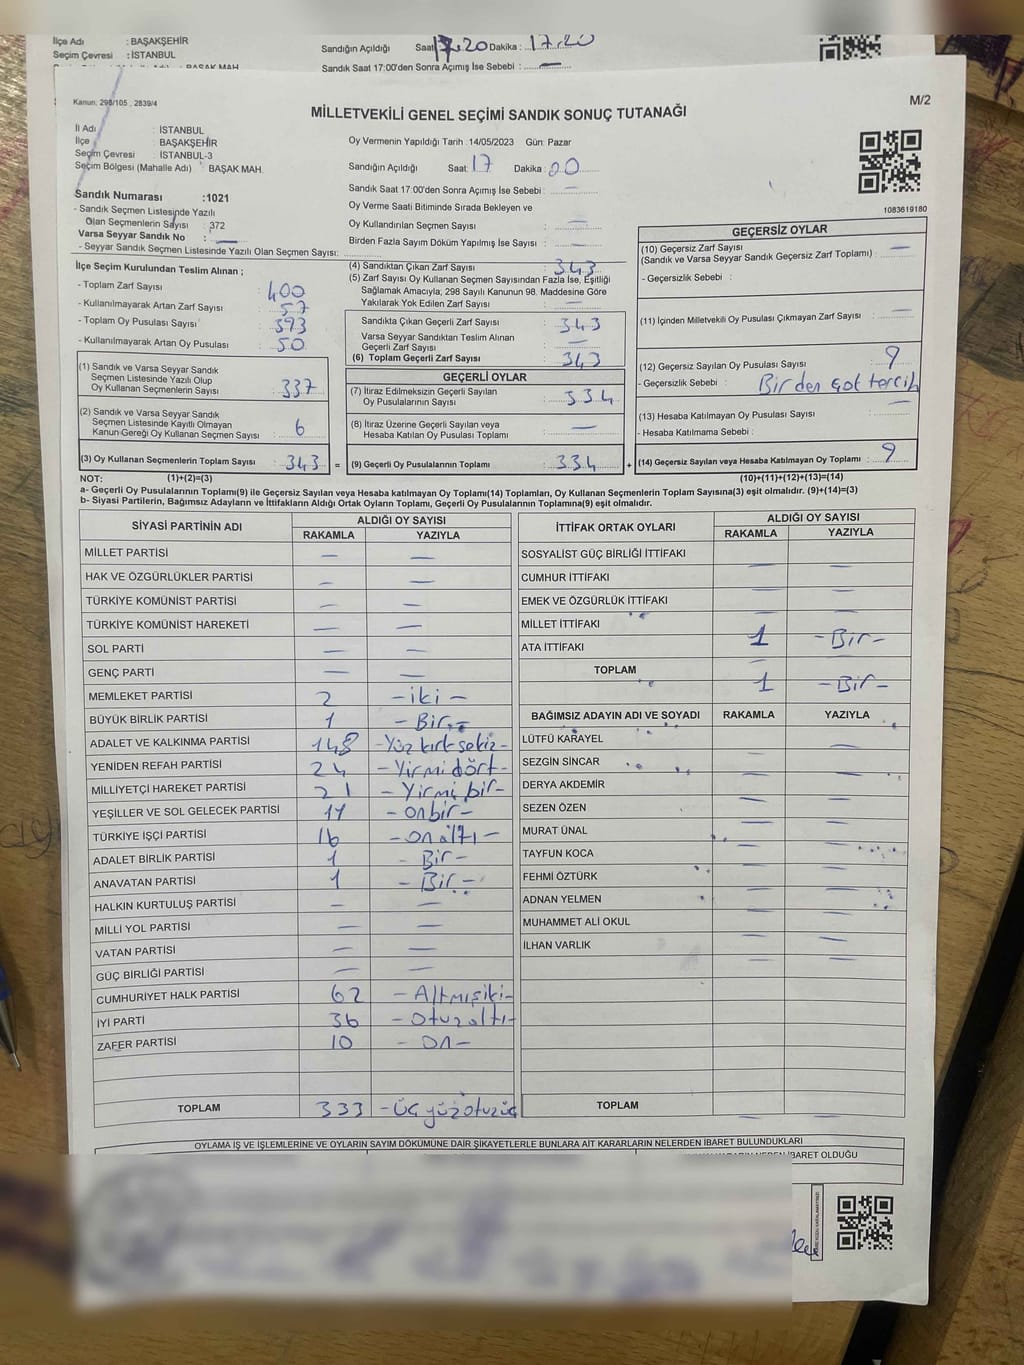 İlçe Adı : BAŞAKŞEHİR
Seçim Çevresi : İSTANBUL
BAŞAK MAH.
Sandığın Açıldığı Saat 17.20 Dakika : 17.20
Sandık Saat 17:00'den Sonra Açımış İse Sebebi : —
Kanun: 298/105 , 2839/4
M/2
MİLLETVEKİLİ GENEL SEÇİMİ SANDIK SONUÇ TUTANAĞI
İl Adı : İSTANBUL
İlçe : BAŞAKŞEHİR
Seçim Çevresi : İSTANBUL-3
Seçim Bölgesi (Mahalle Adı) : BAŞAK MAH.
Sandık Numarası :1021
- Sandık Seçmen Listesinde Yazılı
Olan Seçmenlerin Sayısı : 372
Varsa Seyyar Sandık No : —
- Seyyar Sandık Seçmen Listesinde Yazılı Olan Seçmen Sayısı:
Oy Vermenin Yapıldığı Tarih :14/05/2023 Gün: Pazar
Sandığın Açıldığı Saat: 17 Dakika: 00
Sandık Saat 17:00'den Sonra Açımış İse Sebebi : —
Oy Verme Saati Bitiminde Sırada Bekleyen ve
Oy Kullandırılan Seçmen Sayısı : —
Birden Fazla Sayım Döküm Yapılmış İse Sayısı : —
1083619180
İlçe Seçim Kurulundan Teslim Alınan ;
- Toplam Zarf Sayısı : 400
- Kullanılmayarak Artan Zarf Sayısı : 57
- Toplam Oy Pusulası Sayısı : 393
- Kullanılmayarak Artan Oy Pusulası : 50
(1) Sandık ve Varsa Seyyar Sandık
Seçmen Listesinde Yazılı Olup
Oy Kullanan Seçmenlerin Sayısı : 337
(2) Sandık ve Varsa Seyyar Sandık
Seçmen Listesinde Kayıtlı Olmayan
Kanun Gereği Oy Kullanan Seçmen Sayısı : 6
(3) Oy Kullanan Seçmenlerin Toplam Sayısı : 343 =
(4) Sandıktan Çıkan Zarf Sayısı : 343
(5) Zarf Sayısı Oy Kullanan Seçmen Sayısından Fazla İse, Eşitliği
Sağlamak Amacıyla; 298 Sayılı Kanunun 98. Maddesine Göre
Yakılarak Yok Edilen Zarf Sayısı : —
Sandıkta Çıkan Geçerli Zarf Sayısı : 343
Varsa Seyyar Sandıktan Teslim Alınan
Geçerli Zarf Sayısı : —
(6) Toplam Geçerli Zarf Sayısı : 343
GEÇERLİ OYLAR
(7) İtiraz Edilmeksizin Geçerli Sayılan
Oy Pusulalarının Sayısı : 334
(8) İtiraz Üzerine Geçerli Sayılan veya
Hesaba Katılan Oy Pusulası Toplamı : —
(9) Geçerli Oy Pusulalarının Toplamı : 334 +
GEÇERSİZ OYLAR
(10) Geçersiz Zarf Sayısı : —
(Sandık ve Varsa Seyyar Sandık Geçersiz Zarf Toplamı)
- Geçersizlik Sebebi :
(11) İçinden Milletvekili Oy Pusulası Çıkmayan Zarf Sayısı : —
(12) Geçersiz Sayılan Oy Pusulası Sayısı : 9
- Geçersizlik Sebebi : Birden çok tercih
(13) Hesaba Katılmayan Oy Pusulası Sayısı : —
- Hesaba Katılmama Sebebi :
(14) Geçersiz Sayılan veya Hesaba Katılmayan Oy Toplamı : 9
NOT: (1)+(2)=(3) (10)+(11)+(12)+(13)=(14)
a- Geçerli Oy Pusulalarının Toplamı(9) ile Geçersiz Sayılan veya Hesaba katılmayan Oy Toplamı(14) Toplamları, Oy Kullanan Seçmenlerin Toplam Sayısına(3) eşit olmalıdır. (9)+(14)=(3)
b- Siyasi Partilerin, Bağımsız Adayların ve İttifakların Aldığı Ortak Oyların Toplamı, Geçerli Oy Pusulalarının Toplamına(9) eşit olmalıdır.
SİYASİ PARTİNİN ADI ALDIĞI OY SAYISI
RAKAMLA YAZIYLA
MİLLET PARTİSİ — —
HAK VE ÖZGÜRLÜKLER PARTİSİ — —
TÜRKİYE KOMÜNİST PARTİSİ — —
TÜRKİYE KOMÜNİST HAREKETİ — —
SOL PARTİ — —
GENÇ PARTİ — —
MEMLEKET PARTİSİ 2 -iki-
BÜYÜK BİRLİK PARTİSİ 1 -Bir-
ADALET VE KALKINMA PARTİSİ 148 -Yüz kırk sekiz-
YENİDEN REFAH PARTİSİ 24 -Yirmi dört-
MİLLİYETÇİ HAREKET PARTİSİ 21 -Yirmi bir-
YEŞİLLER VE SOL GELECEK PARTİSİ 11 -onbir-
TÜRKİYE İŞÇİ PARTİSİ 16 -on altı-
ADALET BİRLİK PARTİSİ 1 -Bir-
ANAVATAN PARTİSİ 1 -Bir-
HALKIN KURTULUŞ PARTİSİ — —
MİLLİ YOL PARTİSİ — —
VATAN PARTİSİ — —
GÜÇ BİRLİĞİ PARTİSİ — —
CUMHURİYET HALK PARTİSİ 62 -Altmışiki-
İYİ PARTİ 36 -Otuzaltı-
ZAFER PARTİSİ 10 -On-
TOPLAM 333 -üç yüz otuzüç
İTTİFAK ORTAK OYLARI ALDIĞI OY SAYISI
RAKAMLA YAZIYLA
SOSYALİST GÜÇ BİRLİĞİ İTTİFAKI — —
CUMHUR İTTİFAKI — —
EMEK VE ÖZGÜRLÜK İTTİFAKI — —
MİLLET İTTİFAKI 1 -Bir-
ATA İTTİFAKI —
TOPLAM 1 -Bir-
BAĞIMSIZ ADAYIN ADI VE SOYADI RAKAMLA YAZIYLA
LÜTFÜ KARAYEL — —
SEZGİN SİNCAR — —
DERYA AKDEMİR — —
SEZEN ÖZEN — —
MURAT ÜNAL — —
TAYFUN KOCA — —
FEHMİ ÖZTÜRK — —
ADNAN YELMEN — —
MUHAMMET ALİ OKUL — —
İLHAN VARLIK — —
TOPLAM — —
OYLAMA İŞ VE İŞLEMLERİNE VE OYLARIN SAYIM DÖKÜMÜNE DAİR ŞİKAYETLERLE BUNLARA AİT KARARLARIN NELERDEN İBARET BULUNDUKLARI
İBARET OLDUĞU